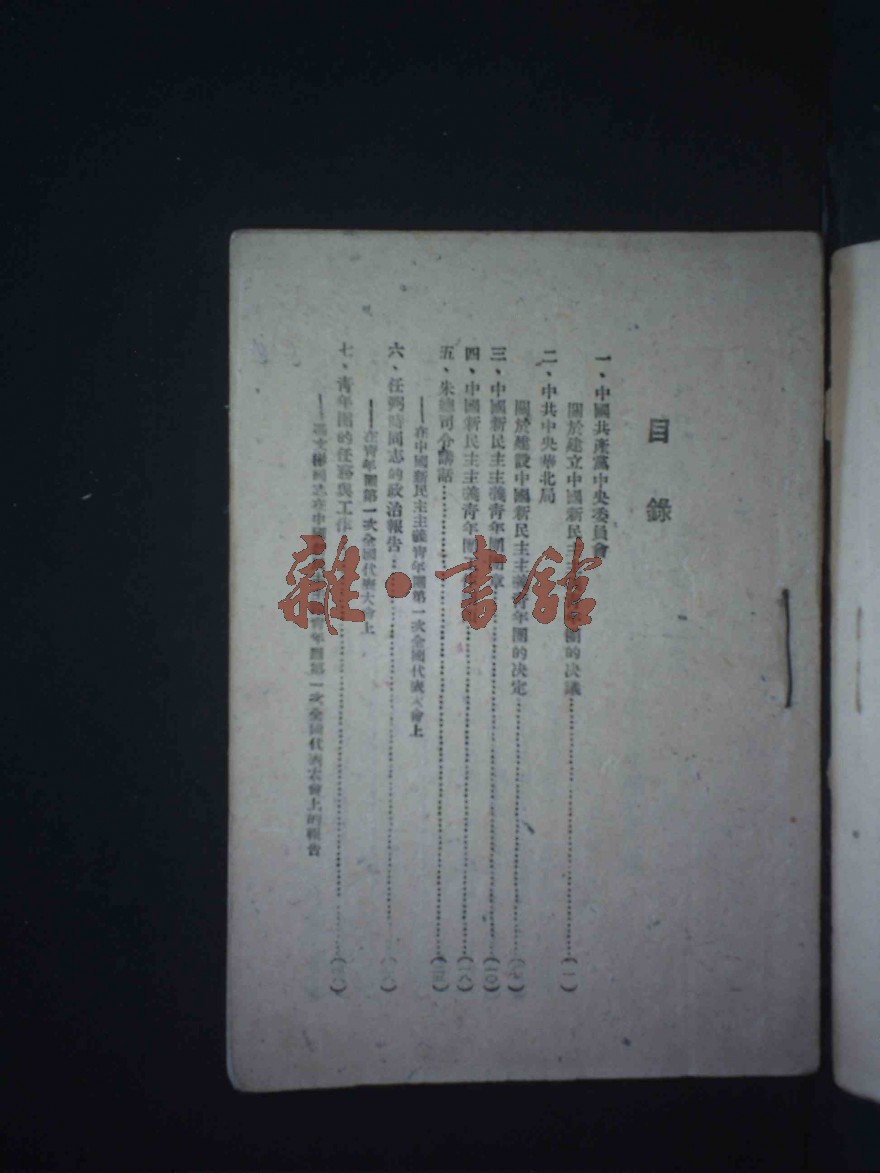 目錄
一、中國共產黨中央委員會
關於建立中國新民主主義青年團的决議…………(一)
二、中共中央華北局
關於建設中國新民主主義青年團的决定…………
三、中國新民主主義青年團團章…………(一〇)
四、中國新民主主義青年團…………(一八)
五、朱總司令講話…………
——在中國新民主主義青年團第一次全國代表大會上
六、任弼時同志的政治報告…………
——在青年團第一次全國代表大會上
七、青年團的任務與工作…………
同志在中國青年團第一次全國代表大會上的報告
雜·書館